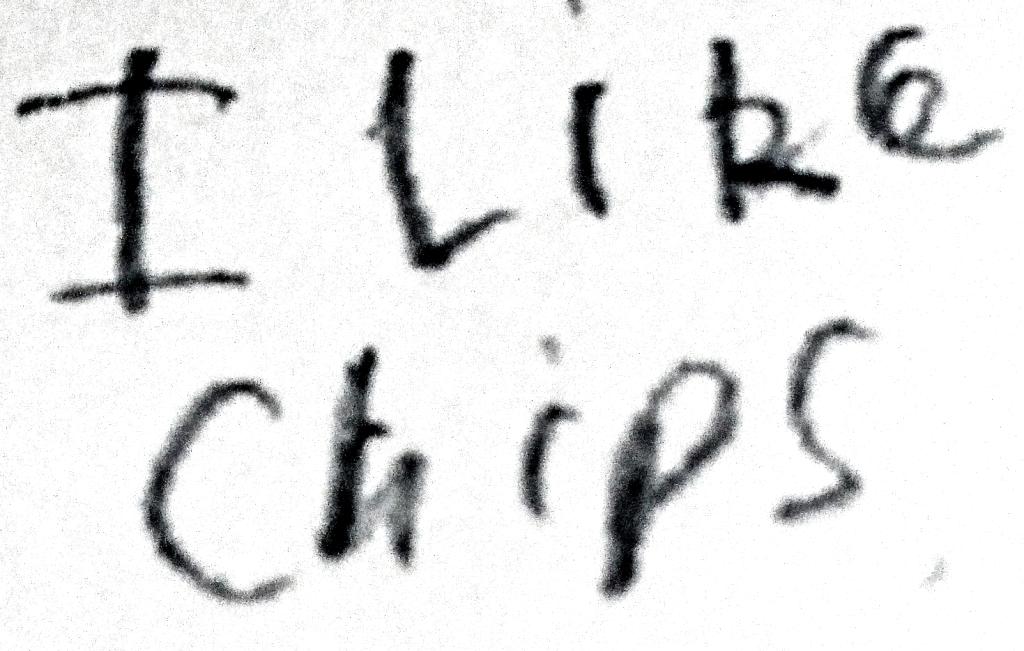 I Like
Chips